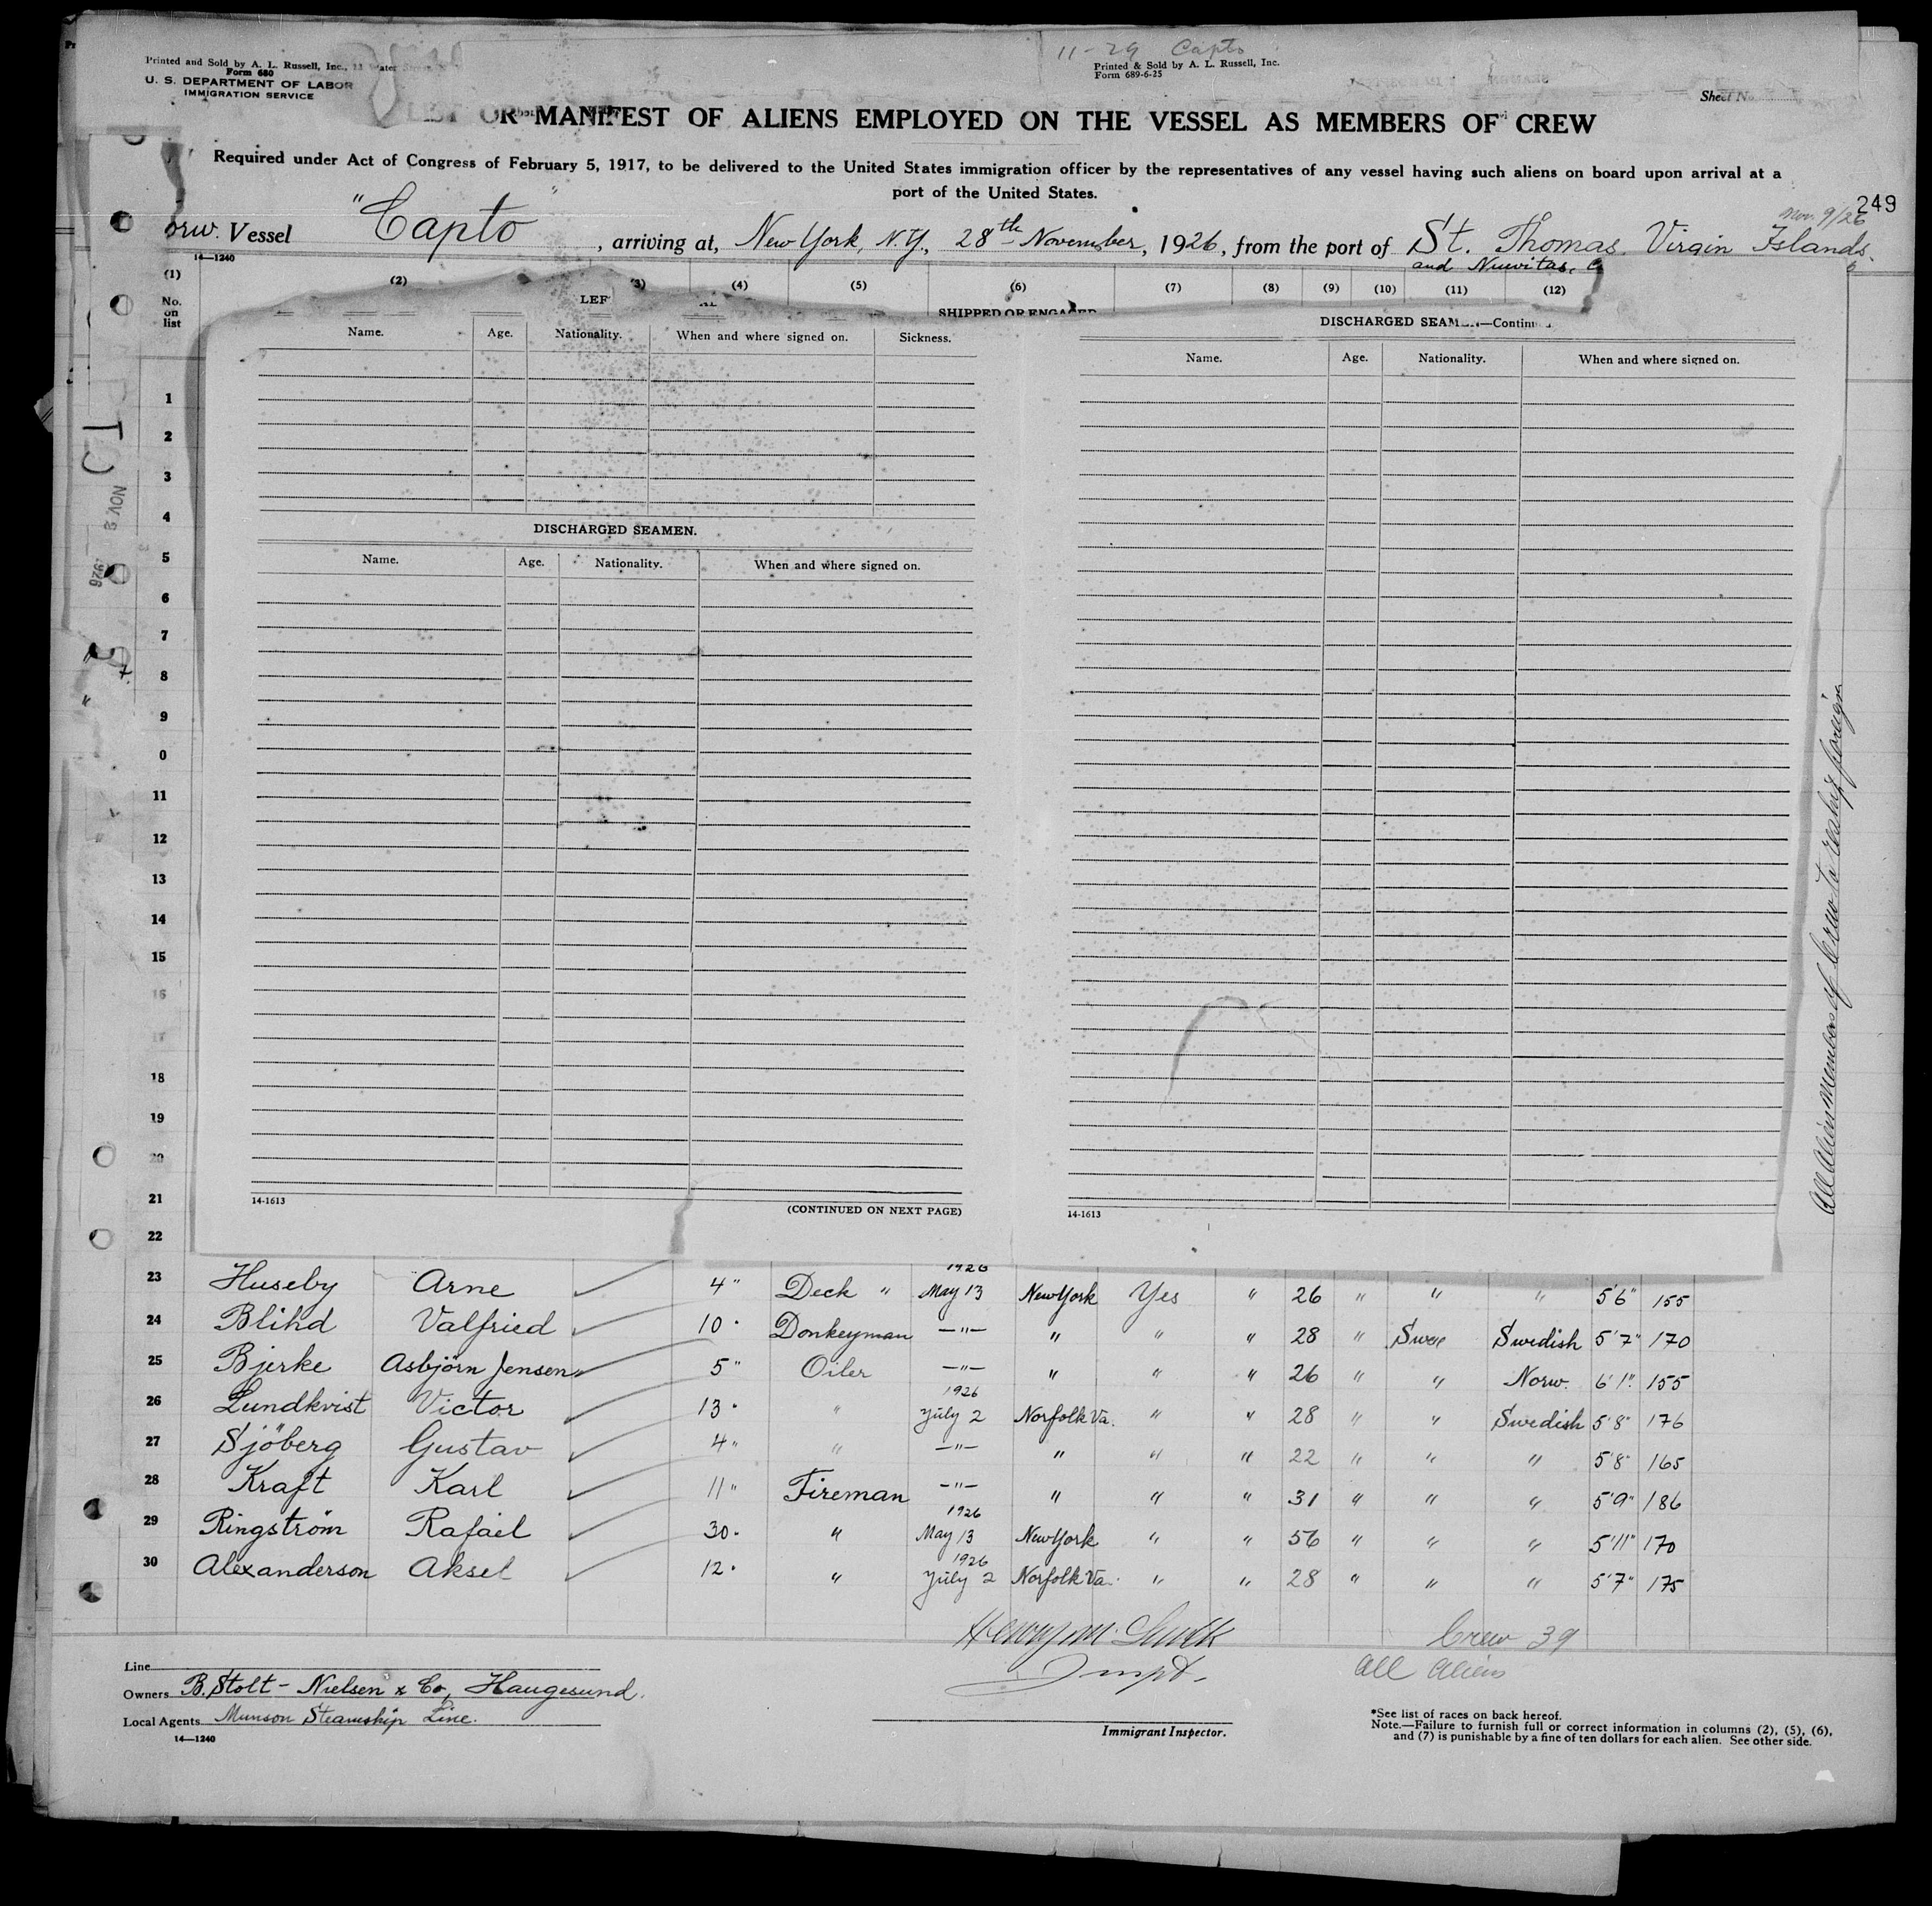 11-29 Capto
Printed and Sold by A. L. Russell, Inc.,
Form 680
U. S. DEPARTMENT OF LABOR
IMMIGRATION SERVICE
Printed & Sold by A. L. Russell, Inc.
Form 689-6-25
Sheet No.
OR MANIFEST OF ALIENS EMPLOYED ON THE VESSEL AS MEMBERS OF CREW
Required under Act of Congress of February 5, 1917, to be delivered to the United States immigration officer by the representatives of any vessel having such aliens on board upon arrival at a
port of the United States.
249
Nov. 9/26
orw. Vessel "Capto", arriving at, New York, N.Y., 28th November, 1926, from the port of St. Thomas Virgin Islands.
and Nuevitas, C
14—1240
(1) (2) (3) (4) (5) (6) (7) (8) (9) (10) (11) (12)
No. on list
LEF
SHIPPED OR ENGAGED
Name. Age. Nationality. When and where signed on. Sickness.
DISCHARGED SEAMEN—Continu
Name. Age. Nationality. When and where signed on.
1
2
3
4
DISCHARGED SEAMEN.
5
Name. Age. Nationality. When and where signed on.
6
7
8
9
0
11
12
13
14
15
16
17
18
19
20
21
22
14-1613
(CONTINUED ON NEXT PAGE)
14-1613
NOV 2
926
All Alien members of Crew to reship foreign
23 Huseby Arne 4" Deck " 1926 May 13 New York Yes " 26 " " " 5'6" 155
24 Blihd Valfried 10" Donkeyman —"— " " " 28 " Swe Swedish 5'7" 170
25 Bjerke Asbjörn Jensen 5" Oiler —"— " " " 26 " " Norw. 6'1" 155
26 Lundkvist Victor 13" " 1926 July 2 Norfolk Va. " " 28 " " Swedish 5'8" 176
27 Sjöberg Gustav 4" " —"— " " " 22 " " " 5'8" 165
28 Kraft Karl 11" Fireman —"— " " " 31 " " " 5'9" 186
29 Ringström Rafael 30" " 1926 May 13 New York " " 56 " " " 5'11" 170
30 Alexanderson Aksel 12" " 1926 July 2 Norfolk Va. " " 28 " " " 5'7" 175
Crew 39
All Aliens
Line
Owners B. Stolt-Nielsen & Co, Haugesund.
Local Agents Munson Steamship Line.
14—1240
Immigrant Inspector.
*See list of races on back hereof.
Note.—Failure to furnish full or correct information in columns (2), (5), (6),
and (7) is punishable by a fine of ten dollars for each alien. See other side.